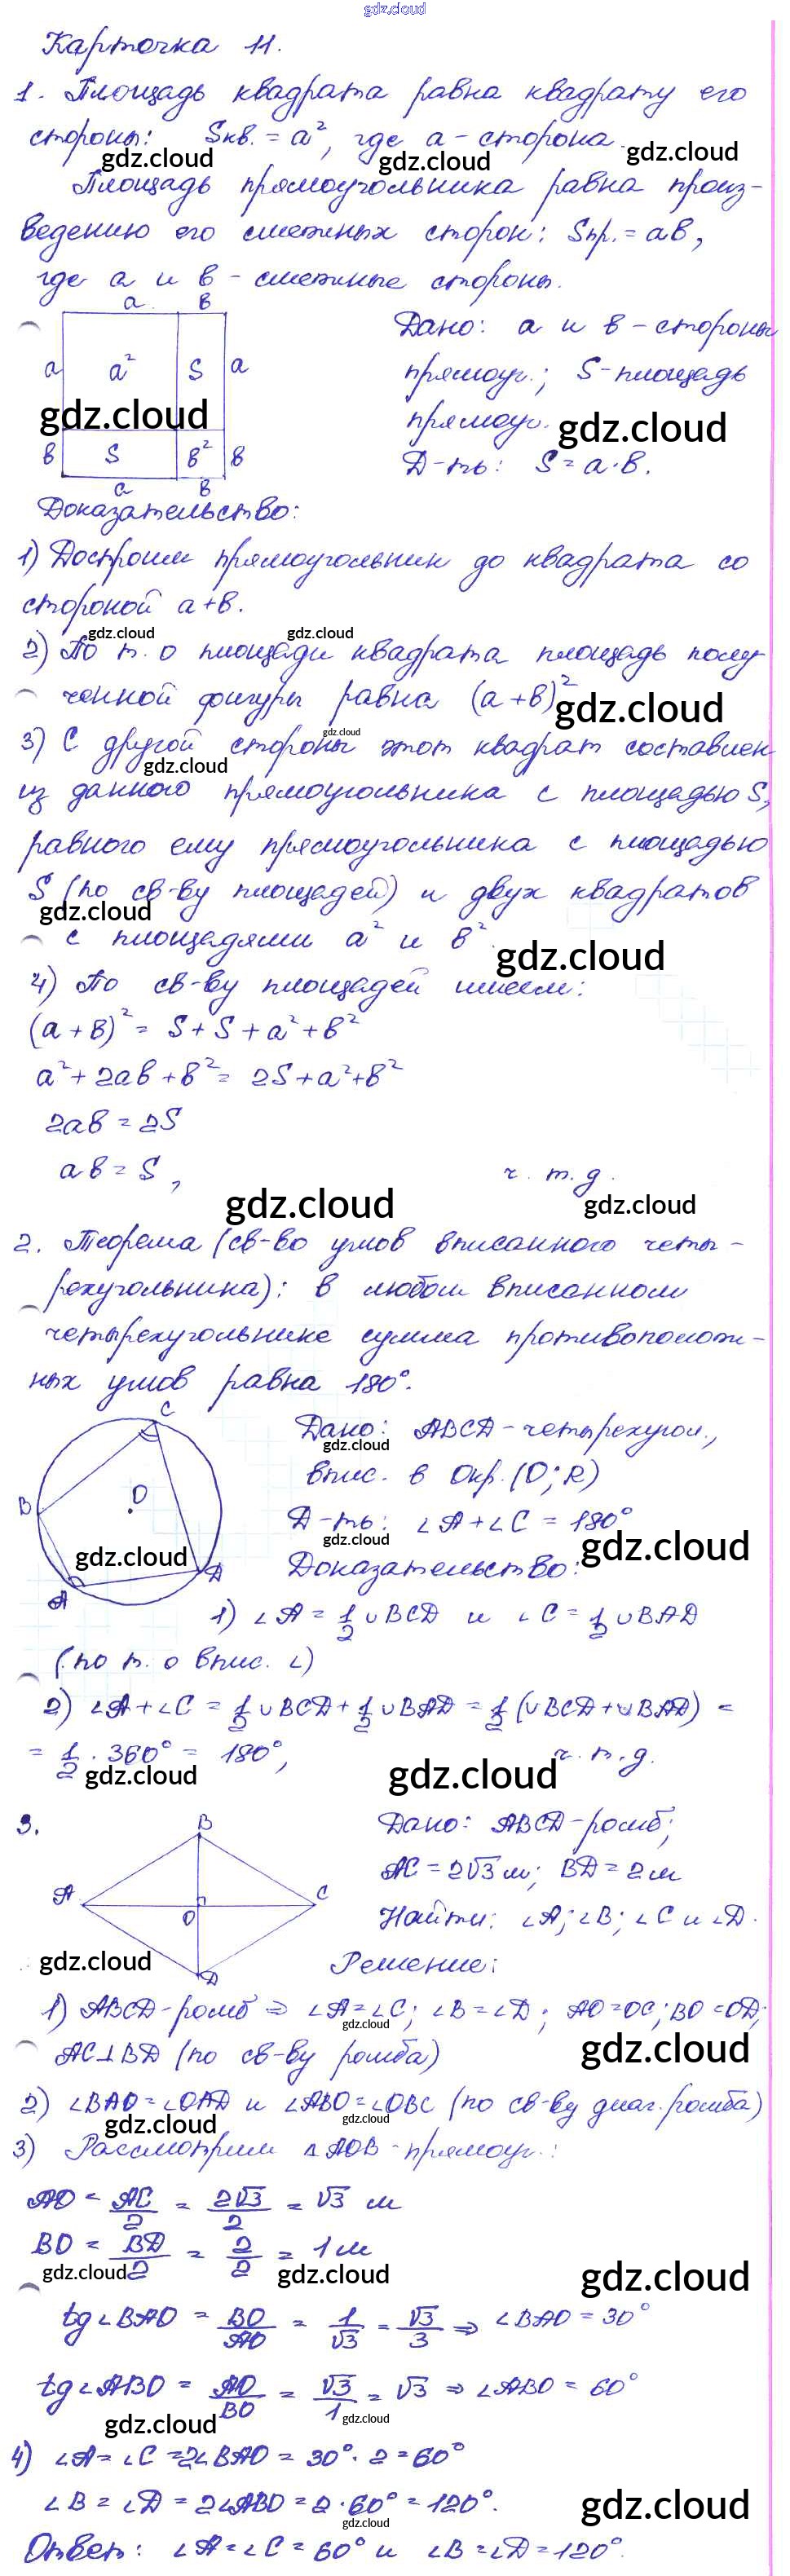 gdz.cloud
Карточка 11.
1. Площадь квадрата равна квадрату его
стороны: Sкв. = a², где a - сторона.
gdz.cloud gdz.cloud gdz.cloud
Площадь прямоугольника равна произ-
ведению его смежных сторон: Sпр. = ab,
где a и b - смежные стороны.
a b
a a² S a
gdz.cloud
b S b² b
a b
Дано: a и b - стороны
прямоуг.; S - площадь
прямоуг.
gdz.cloud
Д-ть: S = a·b.
Доказательство:
1) Достроим прямоугольник до квадрата со
стороной a+b.
gdz.cloud gdz.cloud
2) По т. о площади квадрата площадь полу
ченной фигуры равна (a+b)²
gdz.cloud
gdz.cloud
3) С другой стороны этот квадрат составлен
gdz.cloud
из данного прямоугольника с площадью S,
равного ему прямоугольника с площадью
S (по св-ву площадей) и двух квадратов
gdz.cloud
с площадями a² и b².
gdz.cloud
4) По св-ву площадей имеем:
(a+b)² = S+S+a²+b²
a²+2ab+b² = 2S+a²+b²
2ab = 2S
ab = S, ч.т.д.
gdz.cloud gdz.cloud
2. Теорема (св-во углов вписанного четы-
рехугольника): в любом вписанном
четырехугольнике сумма противополож-
ных углов равна 180°.
C
B O
gdz.cloud
A D
Дано: ABCD - четырехугол.,
gdz.cloud
впис. в Окр.(O; R)
Д-ть: ∠A+∠C = 180°
gdz.cloud gdz.cloud
Доказательство:
1) ∠A = 1/2 ∪BCD и ∠C = 1/2 ∪BAD
(по т. о впис. ∠)
2) ∠A+∠C = 1/2 ∪BCD + 1/2 ∪BAD = 1/2 (∪BCD+∪BAD) =
= 1/2 · 360° = 180°, ч.т.д.
gdz.cloud gdz.cloud
3.
B
A O C
D
gdz.cloud
Дано: ABCD - ромб;
AC = 2√3 м; BD = 2 м
Найти: ∠A; ∠B; ∠C и ∠D.
Решение:
1) ABCD - ромб ⇒ ∠A=∠C; ∠B=∠D; AO=OC; BO=OD;
gdz.cloud gdz.cloud
AC⊥BD (по св-ву ромба)
2) ∠BAO=∠OAD и ∠ABO=∠OBC (по св-ву диаг. ромба)
gdz.cloud gdz.cloud
3) Рассмотрим △AOB - прямоуг.:
AO = AC/2 = 2√3/2 = √3 м
BO = BD/2 = 2/2 = 1 м
gdz.cloud gdz.cloud gdz.cloud
tg∠BAO = BO/AO = 1/√3 = √3/3 ⇒ ∠BAO = 30°
tg∠ABO = AO/BO = √3/1 = √3 ⇒ ∠ABO = 60°
gdz.cloud gdz.cloud
4) ∠A = ∠C = 2∠BAO = 30°·2 = 60°
∠B = ∠D = 2∠ABO = 2·60° = 120°.
gdz.cloud gdz.cloud
Ответ: ∠A=∠C=60° и ∠B=∠D=120°.